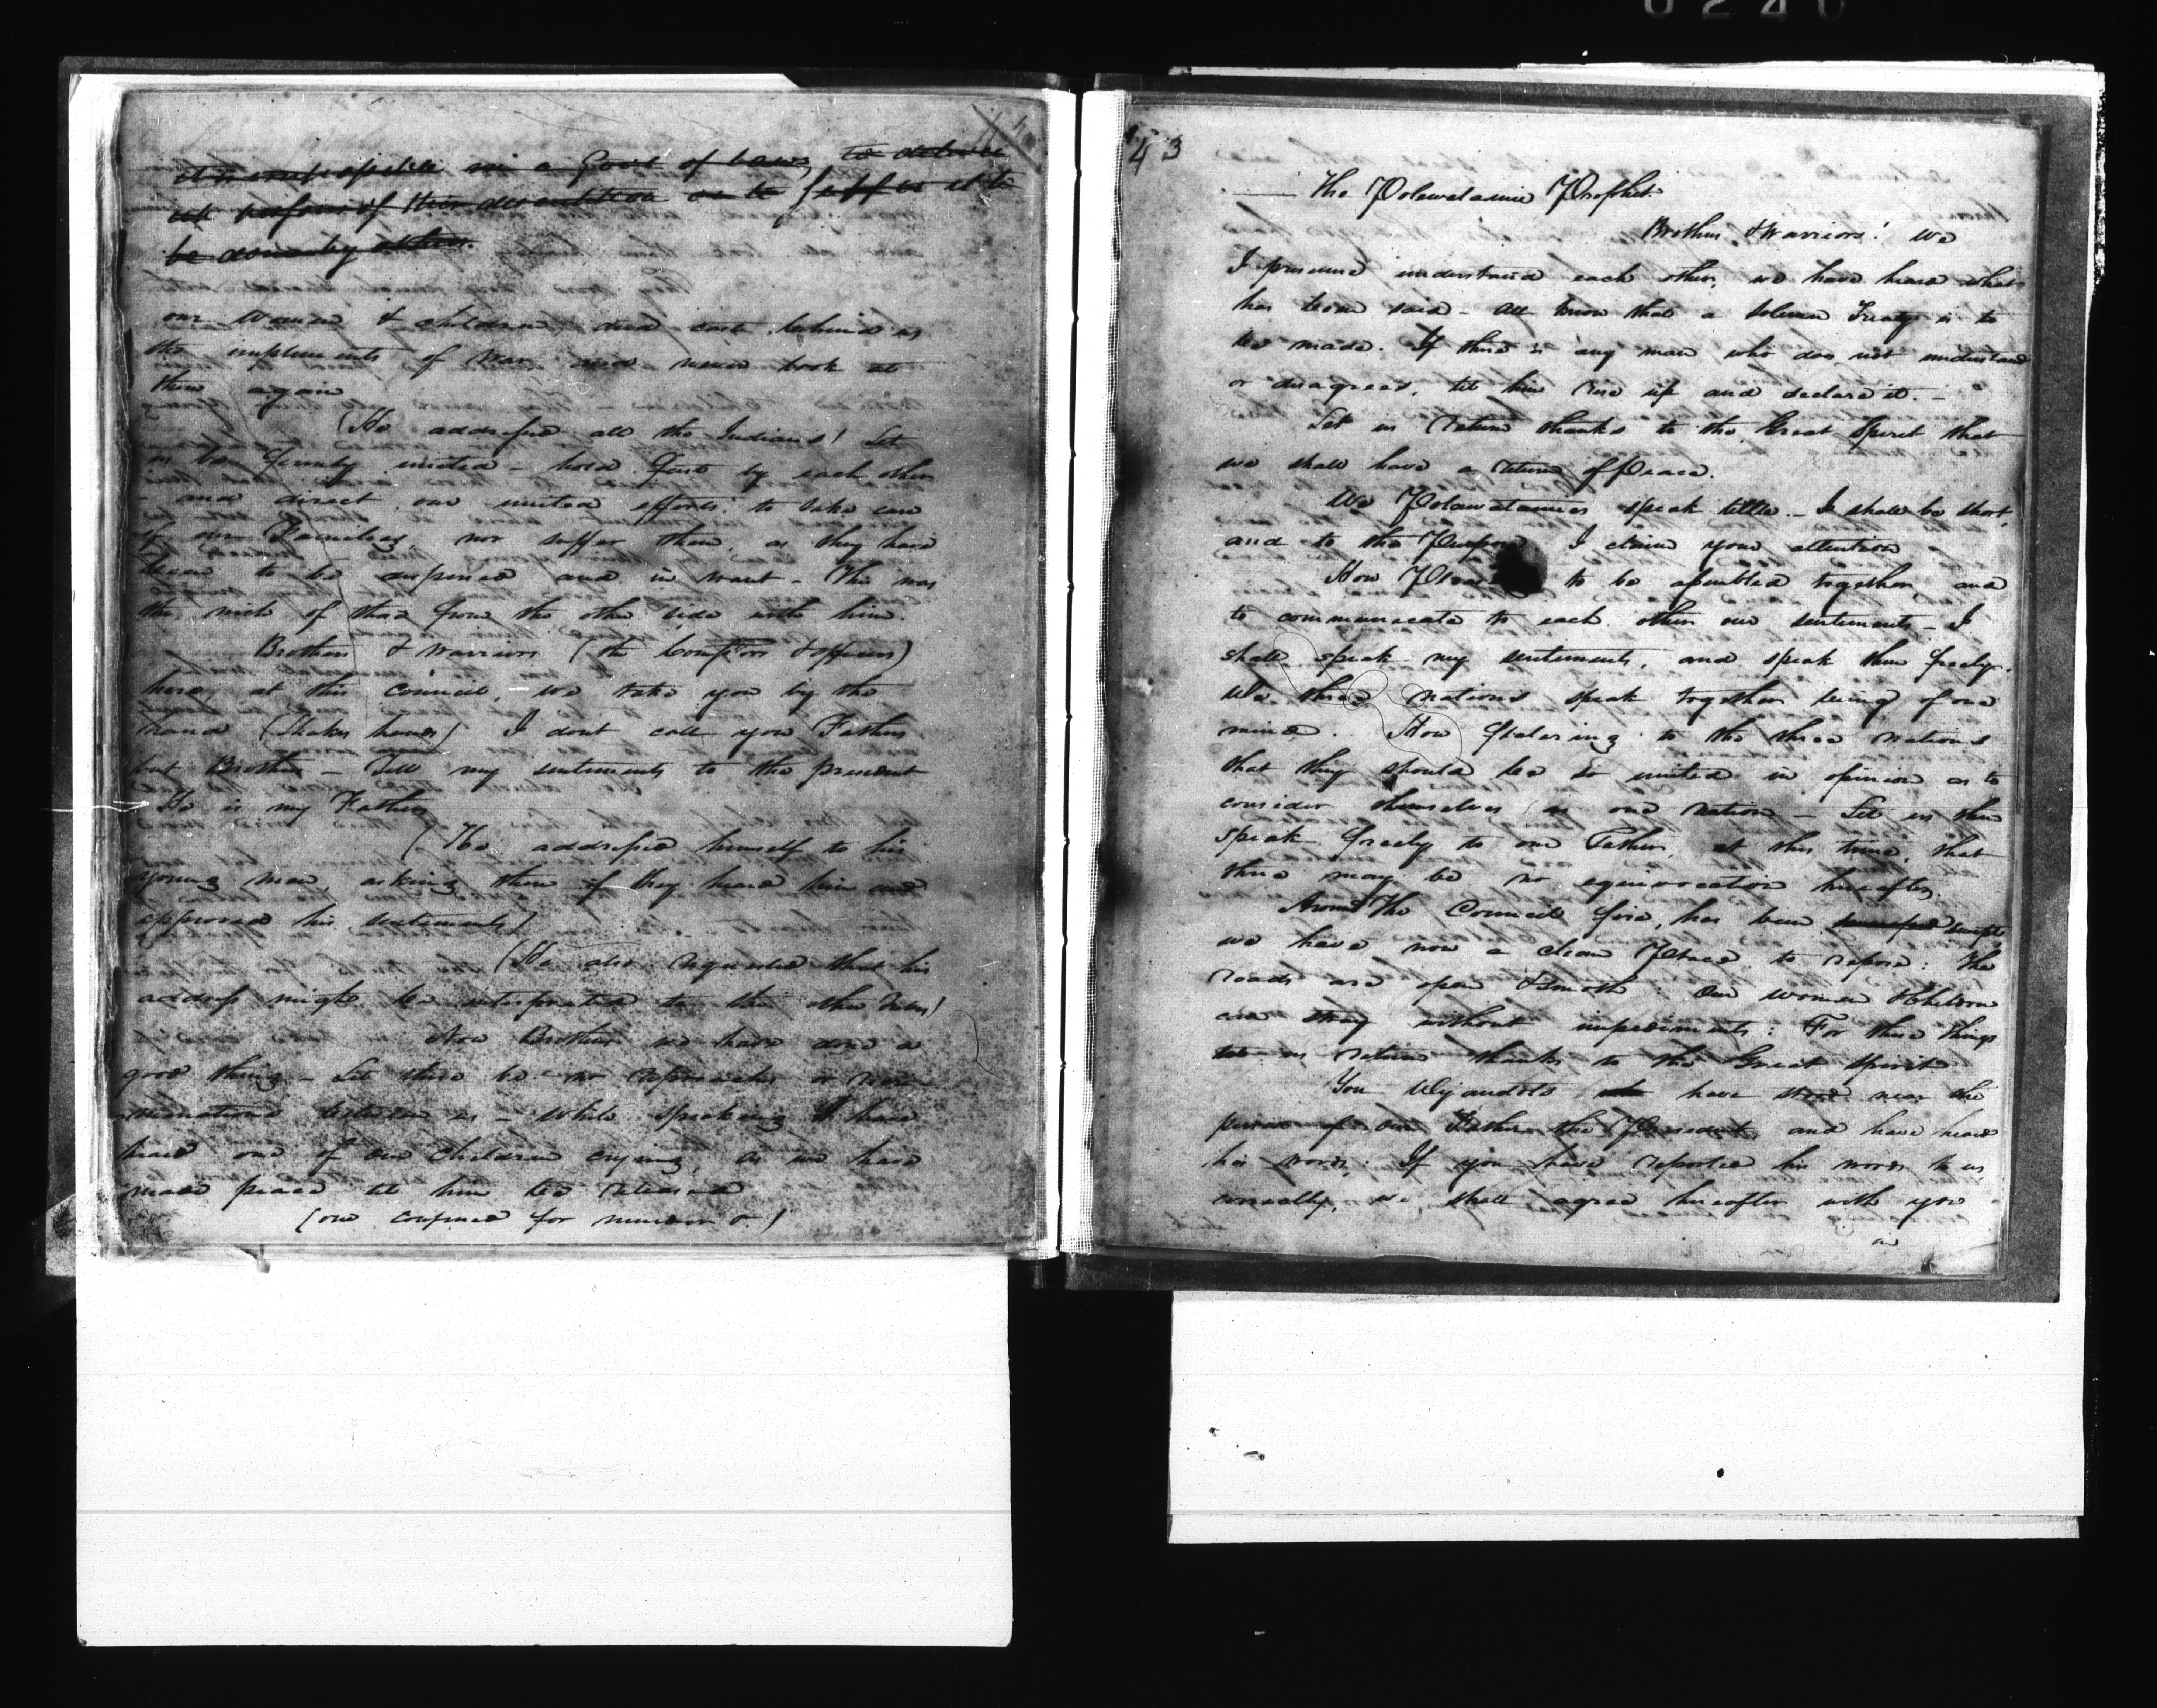 0240
in a Govt of Laws, to
of this
be done by others.
our Women & children and cast behind us
the implements of War and never look at
them again
(He addressed all the Indians) Let
us be firmly united – hold fast by each other
– and direct our united efforts to take care
of our Families, nor suffer them, as they have
been to be dispersed and in want – This was
the wish of those from the other side with him.
Brothers & Warriors (the Comssrs & officers)
here at this council, we take you by the
hand (Shakes hands) I dont call you Fathers
but Brothers – Tell my sentiments to the president
He is my Father
(He addressed himself to his
young men, asking them if they heard him and
approved his sentiments)
(He also requested that his
address might be interpreted to the other tribes)
Now Brothers we have done a
good thing – Let there be no reproaches or
between us – while speaking I have
heard one of our Children crying, as we have
made peace let him be released
(one confined for murder &.)
43
The Potawatamie Prophet.
Brothers & Warriors! We
I presume understand each other, we have heard what
has been said – All know that a solemn Treaty is to
be made. If there is any man who does not understand
or disagrees, let him rise up and declare it. –
Let us return thanks to the Great Spirit that
we shall have a return of Peace.
We Potawatamies speak little – I shall be short,
and to the Purpose I claim your attention
How to be assembled together and
to communicate to each other our sentiments – I
shall speak my sentiments, and speak them freely.
We three nations speak together being of one
mind. How flatering to the three nations
that they should be so united in opinion as to
consider themselves as one nation – Let us then
speak freely to our Father, at this time, that
there may be no equivocation hereafter.
Around The Council fire, has been swept
we have now a clean Place to repose: The
roads are open & smooth: Our women & Children
can stray without impediments: For these things
let us return thanks to the Great Spirit
You Wyandots have stood near the
person of our Father the President, and have heard
his words: If you have reported his words to us
correctly, we shall agree hereafter with you